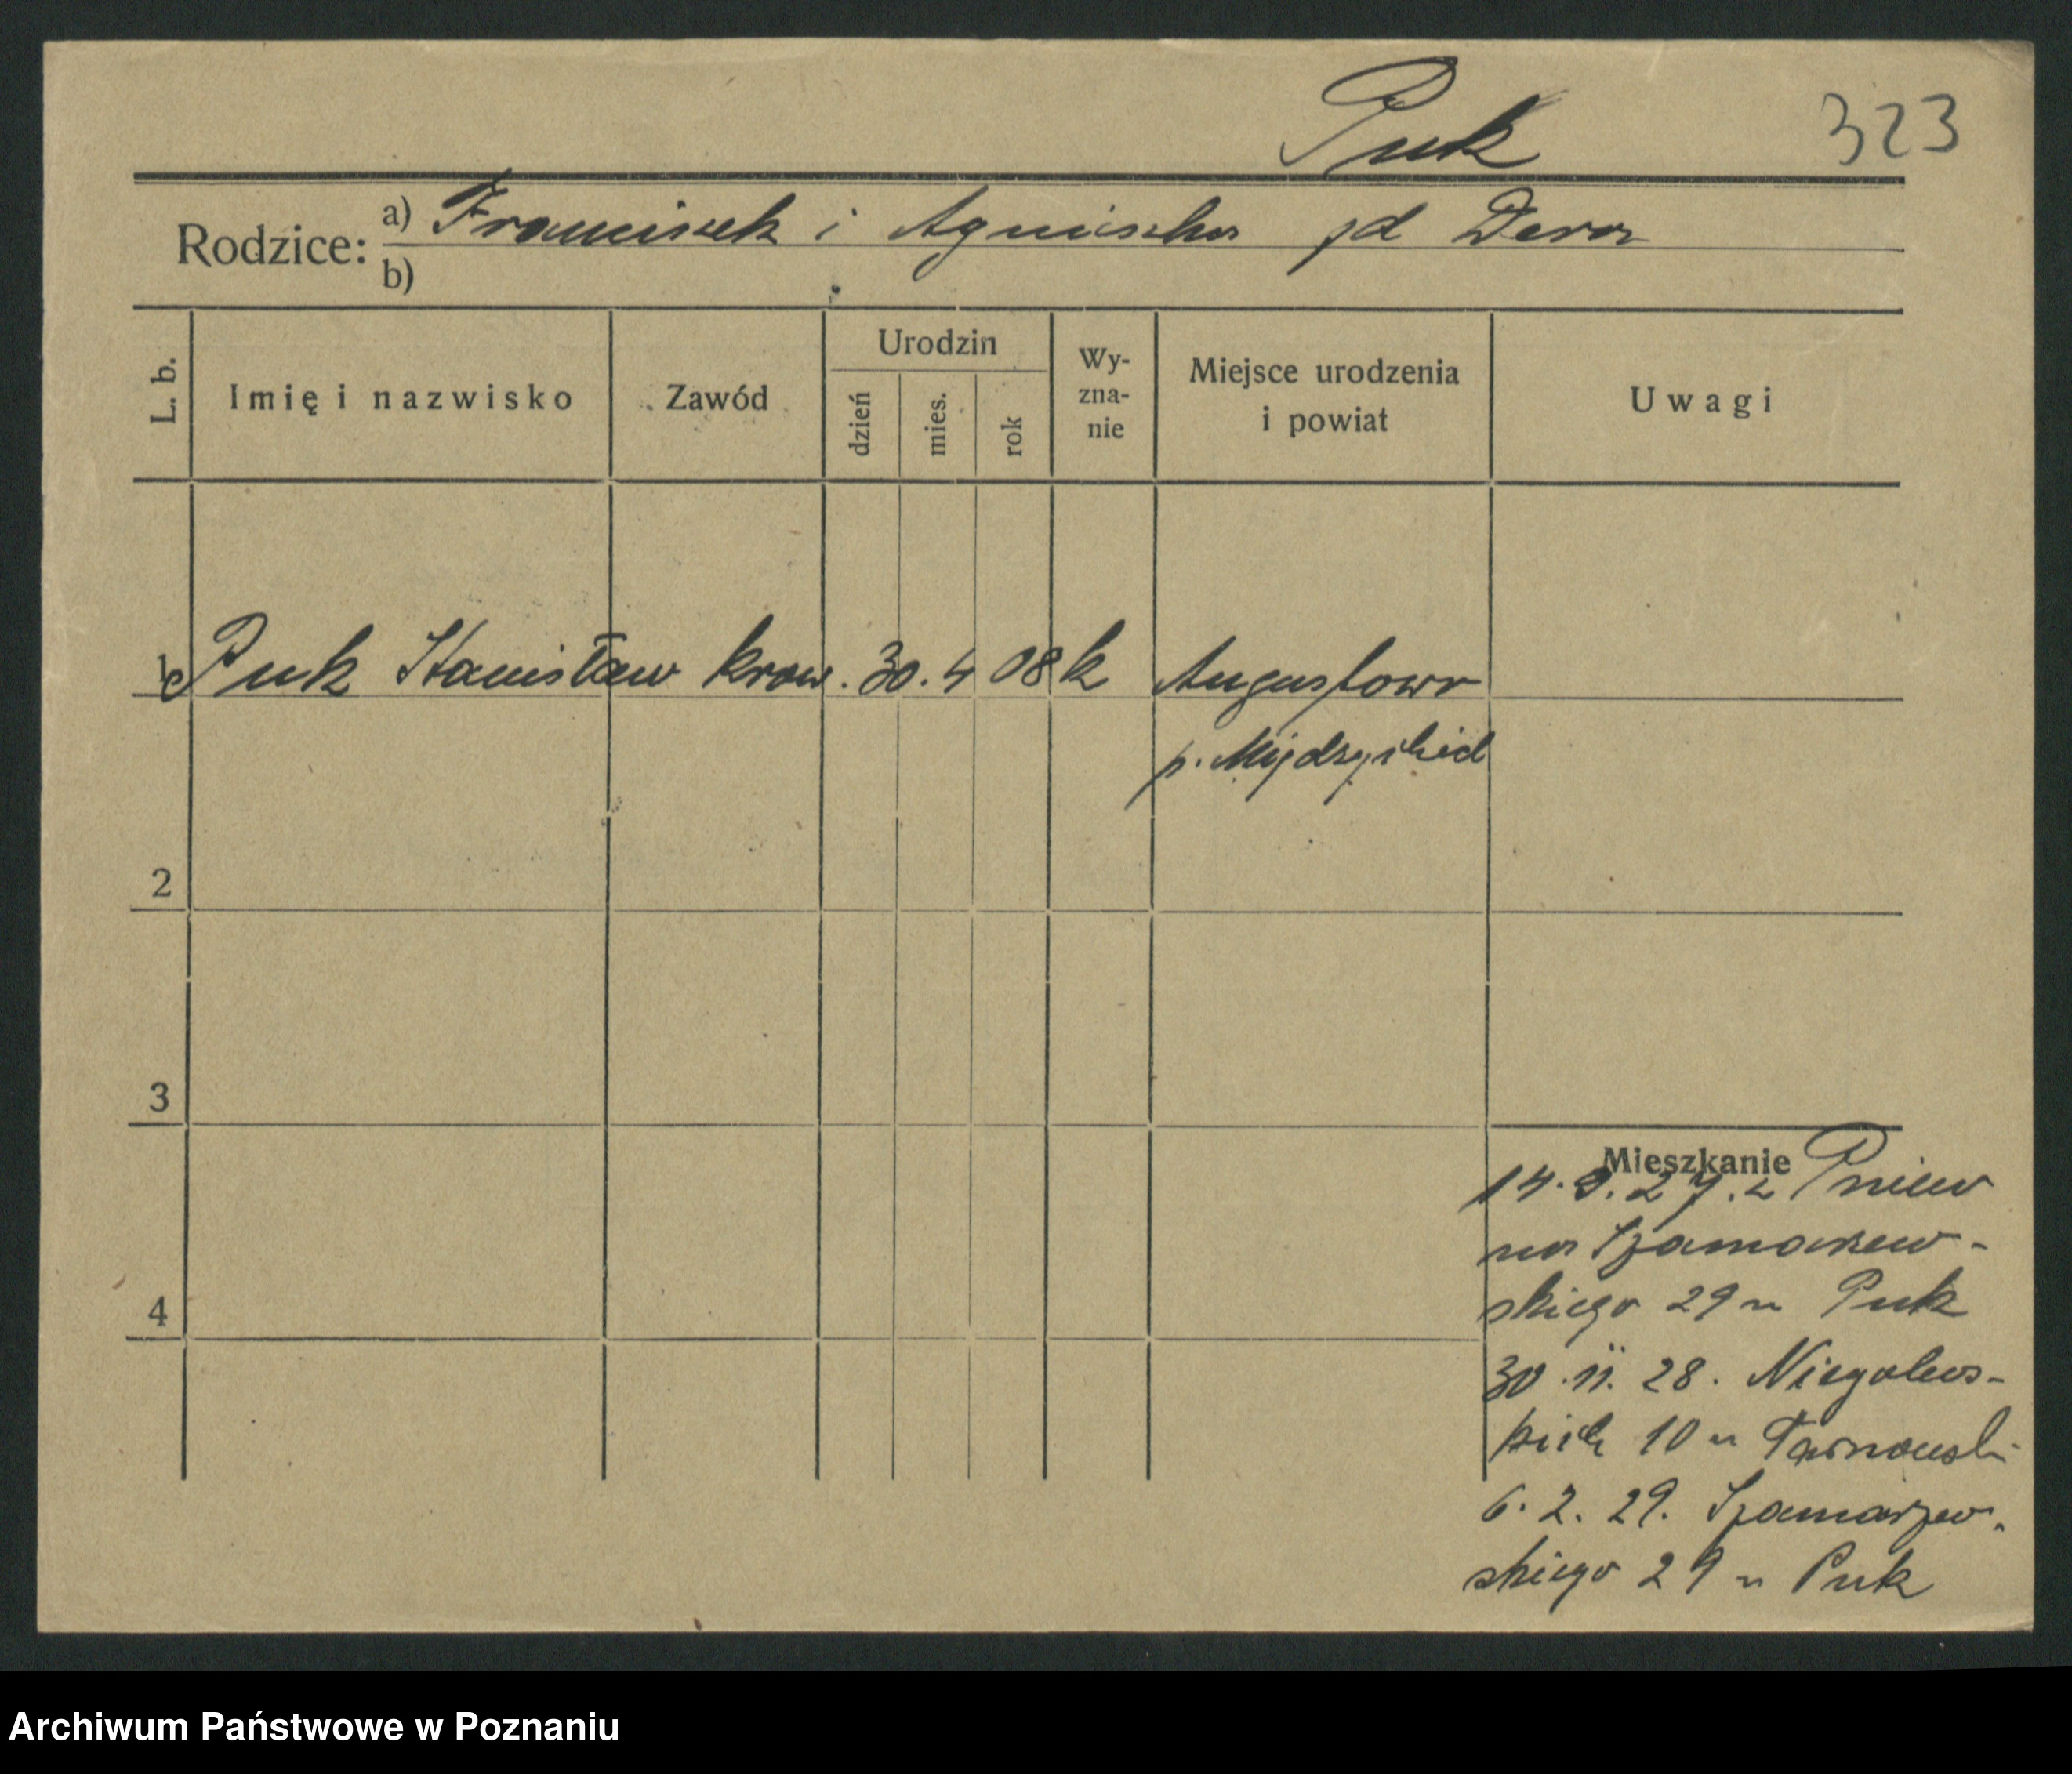 Puk 323
Rodzice: a) Franciszek i Agnieszka zd Dera
b)
L. b. Imię i nazwisko Zawód Urodzin dzień mies. rok Wy-zna-nie Miejsce urodzenia i powiat Uwagi
1 Puk Stanisław kraw. 30. 4 08 k Augustowo
p. Międzychód
2
3
Mieszkanie
14. 9. 27. z Pniew
na Szamarzew-
skiego 29 u Puk
4
30. 11. 28. Niegolews-
kich 10 u Tarnowski
6. 2. 29. Szamarzew-
skiego 29 u Puk
Archiwum Państwowe w Poznaniu